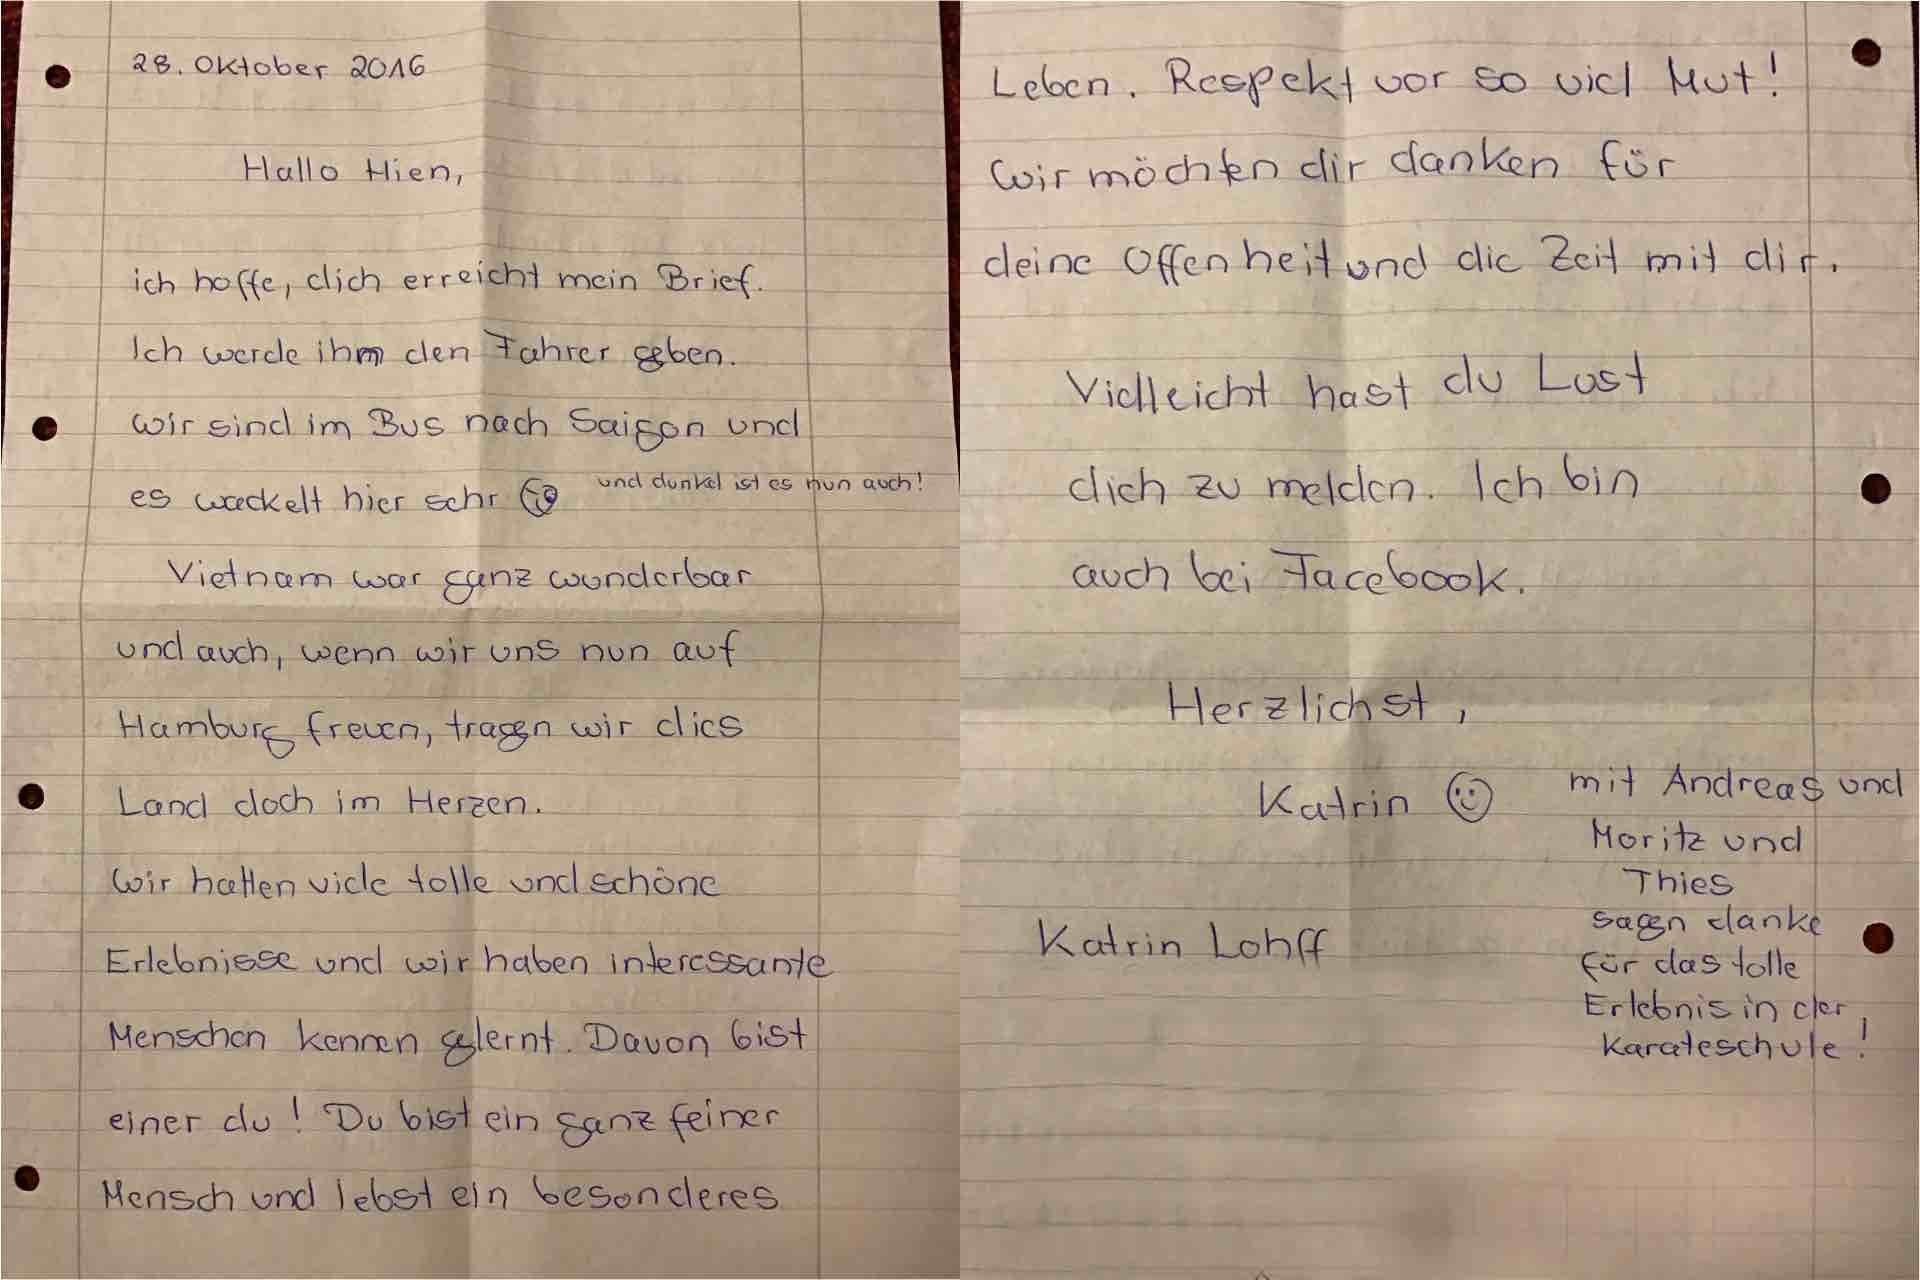 28. Oktober 2016
Hallo Hien,
ich hoffe, dich erreicht mein Brief.
Ich werde ihm den Fahrer geben.
Wir sind im Bus nach Saigon und
es wackelt hier sehr 😉 und dunkel ist es nun auch!
Vietnam war ganz wunderbar
und auch, wenn wir uns nun auf
Hamburg freuen, tragen wir dies
Land doch im Herzen.
Wir hatten viele tolle und schöne
Erlebnisse und wir haben interessante
Menschen kennen gelernt. Davon bist
einer du! Du bist ein ganz feiner
Mensch und lebst ein besonderes
Leben. Respekt vor so viel Mut!
Wir möchten dir danken für
deine Offenheit und die Zeit mit dir.
Vielleicht hast du Lust
dich zu melden. Ich bin
auch bei Facebook.
Herzlichst,
Katrin ☺
Katrin Lohff
mit Andreas und
Moritz und
Thies
sagen danke
für das tolle
Erlebnis in der
Karateschule!